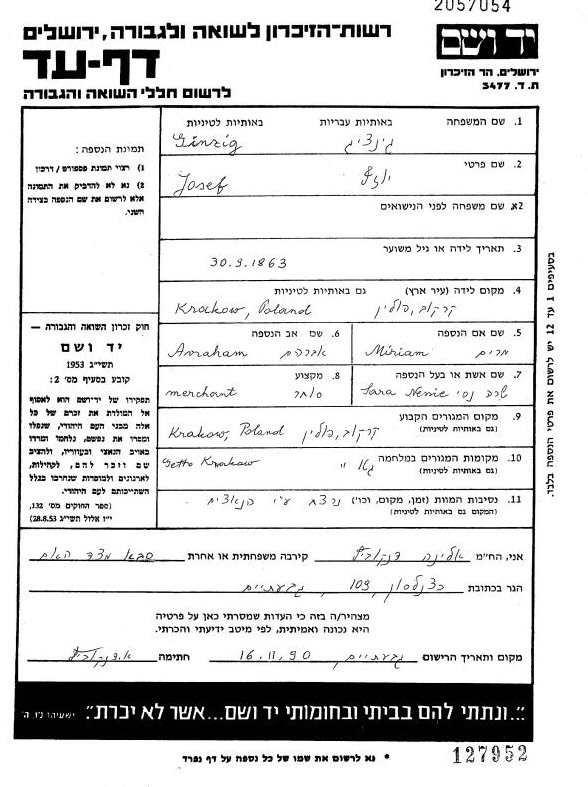 2057054
יד ושם
ירושלים, הר הזיכרון
ת. ד. 3477
רשות-הזיכרון לשואה ולגבורה, ירושלים
דף-עד
לרשום חללי השואה והגבורה
תמונת הנספה:
1) רצוי תמונת פספורט / דרכון
2) נא לא להדביק את התמונה
אלא לרשום את שם הנספה בצידה
השני.
חוק זכרון השואה והגבורה —
יד ושם
תשי״ג 1953
קובע בסעיף מס׳ 2:
תפקידו של יד-ושם הוא לאסוף
אל המולדת את זכרם של כל
אלה מבני העם היהודי, שנפלו
ומסרו את נפשם, נלחמו ומרדו
באויב הנאצי ובעוזריו, ולהציב
שם וזכר להם, לקהילות,
לארגונים ולמוסדות שנחרבו בגלל
השתייכותם לעם היהודי.
(ספר החוקים מס׳ 132,
י״ז אלול תשי״ג 28.8.53)
1. שם המשפחה באותיות עבריות באותיות לטיניות
גינציג Ginzig
2. שם פרטי
יוזף Josef
2א. שם משפחה לפני הנישואים
3. תאריך לידה או גיל משוער
30.9.1863
4. מקום לידה (עיר ארץ) גם באותיות לטיניות
קרקוב, פולין Krakow, Poland
5. שם אם הנספה
מרים Miriam
6. שם אב הנספה
אברהם Avraham
7. שם אשת או בעל הנספה
Sara
8. מקצוע
סוחר merchant
9. מקום המגורים הקבוע
(גם באותיות לטיניות)
קרקוב, פולין Krakow, Poland
10. מקומות המגורים במלחמה
(גם באותיות לטיניות)
גטו ״ Getto Krakow
11. נסיבות המוות (זמן, מקום, וכו׳)
(המקום גם באותיות לטיניות)
נרצח ע״י הנאצים
בסעיפים 1 עד 12 יש לרשום את פרטי הנספה בלבד.
אני, הח״מ אלינה קירבה משפחתית או אחרת סבא מצד האם
הגר בכתובת כצנלסון 103, גבעתיים
מצהיר/ה בזה כי העדות שמסרתי כאן על פרטיה
היא נכונה ואמיתית, לפי מיטב ידיעתי והכרתי.
מקום ותאריך הרישום גבעתיים 16.11.90 חתימה
״...ונתתי להם בביתי ובחומותי יד ושם...אשר לא יכרת״. ישעיהו נ״ו, ה׳
* נא לרשום את שמו של כל נספה על דף נפרד
127952